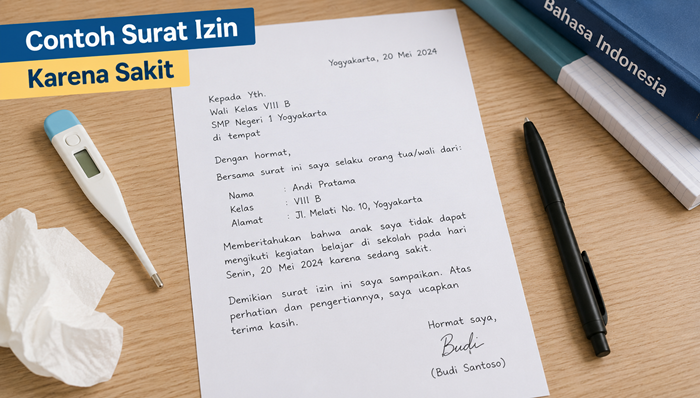 Contoh Surat Izin
Karena Sakit
Yogyakarta, 20 Mei 2024
Kepada Yth.
Wali Kelas VIII B
SMP Negeri 1 Yogyakarta
di tempat
Dengan hormat,
Bersama surat ini saya selaku orang tua/wali dari:
Nama : Andi Pratama
Kelas : VIII B
Alamat : Jl. Melati No. 10, Yogyakarta
Memberitahukan bahwa anak saya tidak dapat
mengikuti kegiatan belajar di sekolah pada hari
Senin, 20 Mei 2024 karena sedang sakit.
Demikian surat izin ini saya sampaikan. Atas
perhatian dan pengertiannya, saya ucapkan
terima kasih.
Hormat saya,
Budi
(Budi Santoso)
Bahasa Indonesia